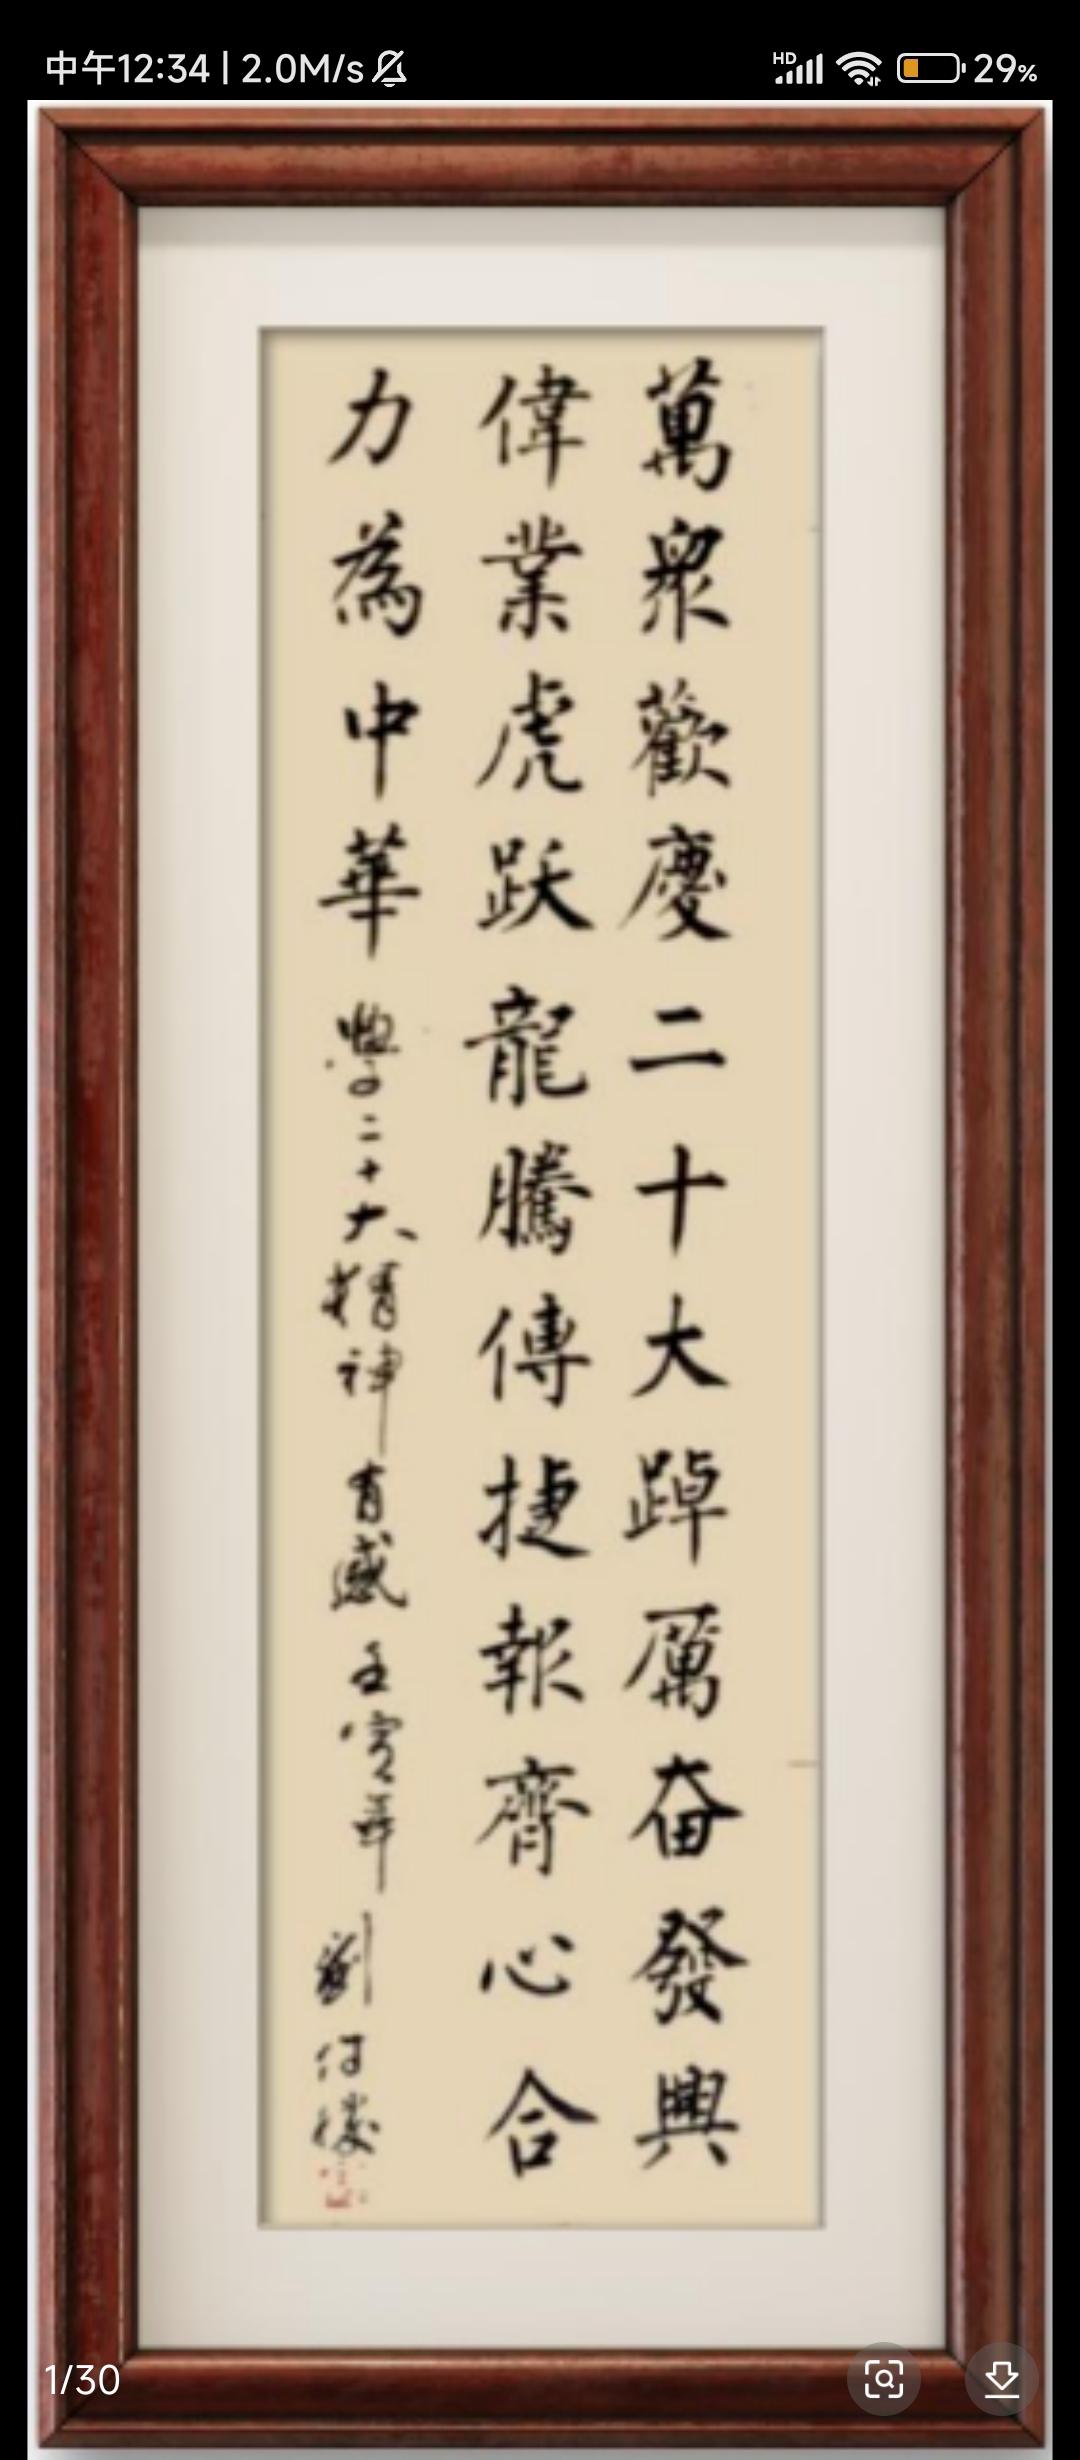 中午12:34 | 2.0M/s
HD
29%
萬衆歡慶二十大踔厲奋發興
偉業虎跃龍騰傳捷報齊心合
力為中華 學二十大精神有感 壬寅年 劉付
1/30